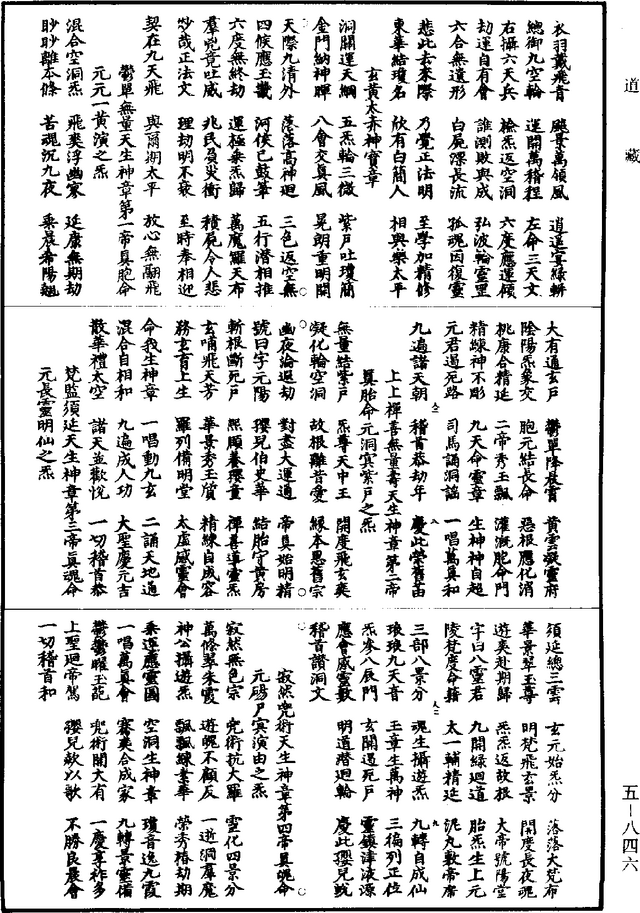 道藏
五－八四六
衣羽戴飛青　飈景萬領風　逍遥寧緑軿
總御九空輪　運開萬稽程　左命三天文
右攝六天兵　檢炁返空洞　六度應運傾
劫運自有會　誰測敗與成　弘波輪靈罡
六合無遺形　白屍踝長流　孤魂因復靈
悲此去來際　乃覺正法明　至學加精修
東華結瓊名　欣有白簡人　相與樂太平
玄黄太赤神寶章
洞開運天綱　五炁輪三微　紫户吐瓊簡
金門納神暉　八會交真風　晃朗重明開
天際九清外　落落高神迴　三色返空無
四候應玉畿　河侯已鼓筆　五行潛相推
六度無終劫　運極乘炁歸　萬魔羅天布
羣兇競吐威　兆民負災衝　積屍令人悲
妙哉正法文　理劫明不衰　至時奉相迎
契在九天飛　與爾期太平　放心無翩飛
鬱單無量天生神章第一帝真胞命
元元一黄演之炁
混合空洞炁　飛爽浮幽寥　延康無期劫
眇眇離本條　苦魂沉九夜　乘晨希陽翹
大有通玄户　鬱單降霄　黄雲凝靈府
陰陽炁象交　胞元結長命　惡根應化消
桃康合精延　二帝秀玉飄　灌溉胞命門
精練神不彫　九天命靈章　生神神自超
元君遏死路　司馬誦洞謡　一唱萬真和
九遍諸天朝　稽首恭劫年　慶此榮舊苗
上上禪善無量壽天生神章第二帝
真胎命元洞冥紫户之炁
無量結紫户　炁尊天中王　開度飛玄爽
凝化輪空洞　故根離昔愛　縁本思舊宗
幽夜淪遐劫　對盡大運通　帝真始明精
號曰字元陽　瓔兒伯史華　結胎守黄房
斬根斷死户　熙頤養瓔童　禪善導靈炁
玄哺飛天芳　華景秀玉質　精練自成容
務玄育上生　羅列備明堂　太虚感靈會
命我生神章　一唱動九玄　二誦天地通
混合自相和　九遍成人功　大聖慶元吉
散華禮太空　諸天並歡悦　一切稽首恭
梵監須延天生神章第三帝真魂命
元長靈明仙之炁
須延總三雲　玄元始炁分　落落大梵布
華景翠玉尊　明梵飛玄景　開度長夜魂
遊爽赴期歸　炁炁返故根　大帝號陽堂
字曰八靈君　九關緑迴道　胎炁生上元
陵梵度命籍　太一輔精延　泥丸敷帝席
三部八景分　魂生攝遊炁　九轉自成仙
琅琅九天音　玉章生萬神　三徧列正位
炁參八辰門　玄關遏死户　靈鎮津液源
應會感靈數　明道潛迴輪　慶此瓔兒蛻
稽首讚洞文
寂然兜術天生神章第四帝真魄命
元碭尸冥演由之炁
寂然無色宗　兜術抗大羅　靈化四景分
萬條翠朱霞　遊魄不顧反　一逝洞羣魔
神公攝遊炁　飄飄練素華　榮秀椿劫期
乘運應靈圖　空洞生神章　瓊音逸九霞
一唱萬真會　騫爽合成家　九轉景靈備
鬱鬱曜玉葩　兜術開大有　一慶享祚多
上聖迴帝駕　瓔兒歘以歌　不勝良晨會
一切稽首和